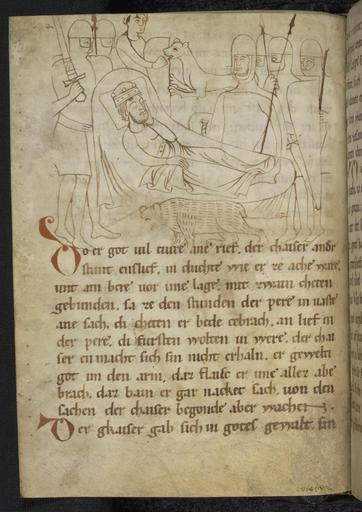 So er got uil tiure ane rief. der chaiser ander
stunt enslief. in duchte wie er ze ache were.
unt ain bere uor ime lage. mit zwain cheten
gebunden. sa ze den stunden der pere in uaste
ane sach. di cheten er bede cebrach. an lief en
der pere. di fursten wolten in were. der chai
ser en macht sich sin nicht erhaln. er gewelti
got im den arm. daz flaisc er ime allez abe
brach. daz bain er gar nacket sach. uon den
sachen der chaiser begonde aber wachen.
Der chaiser gab sich in gotes gewalt. sin